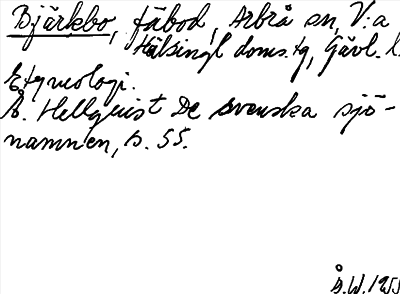 Bjärkbo, fäbod, Arbrå sn, V:a
Hälsingl doms:tg, Gävl. l.
Etymologi.
E. Hellquist De svenska sjö-
namnen, s. 55.
Å.W. 1955